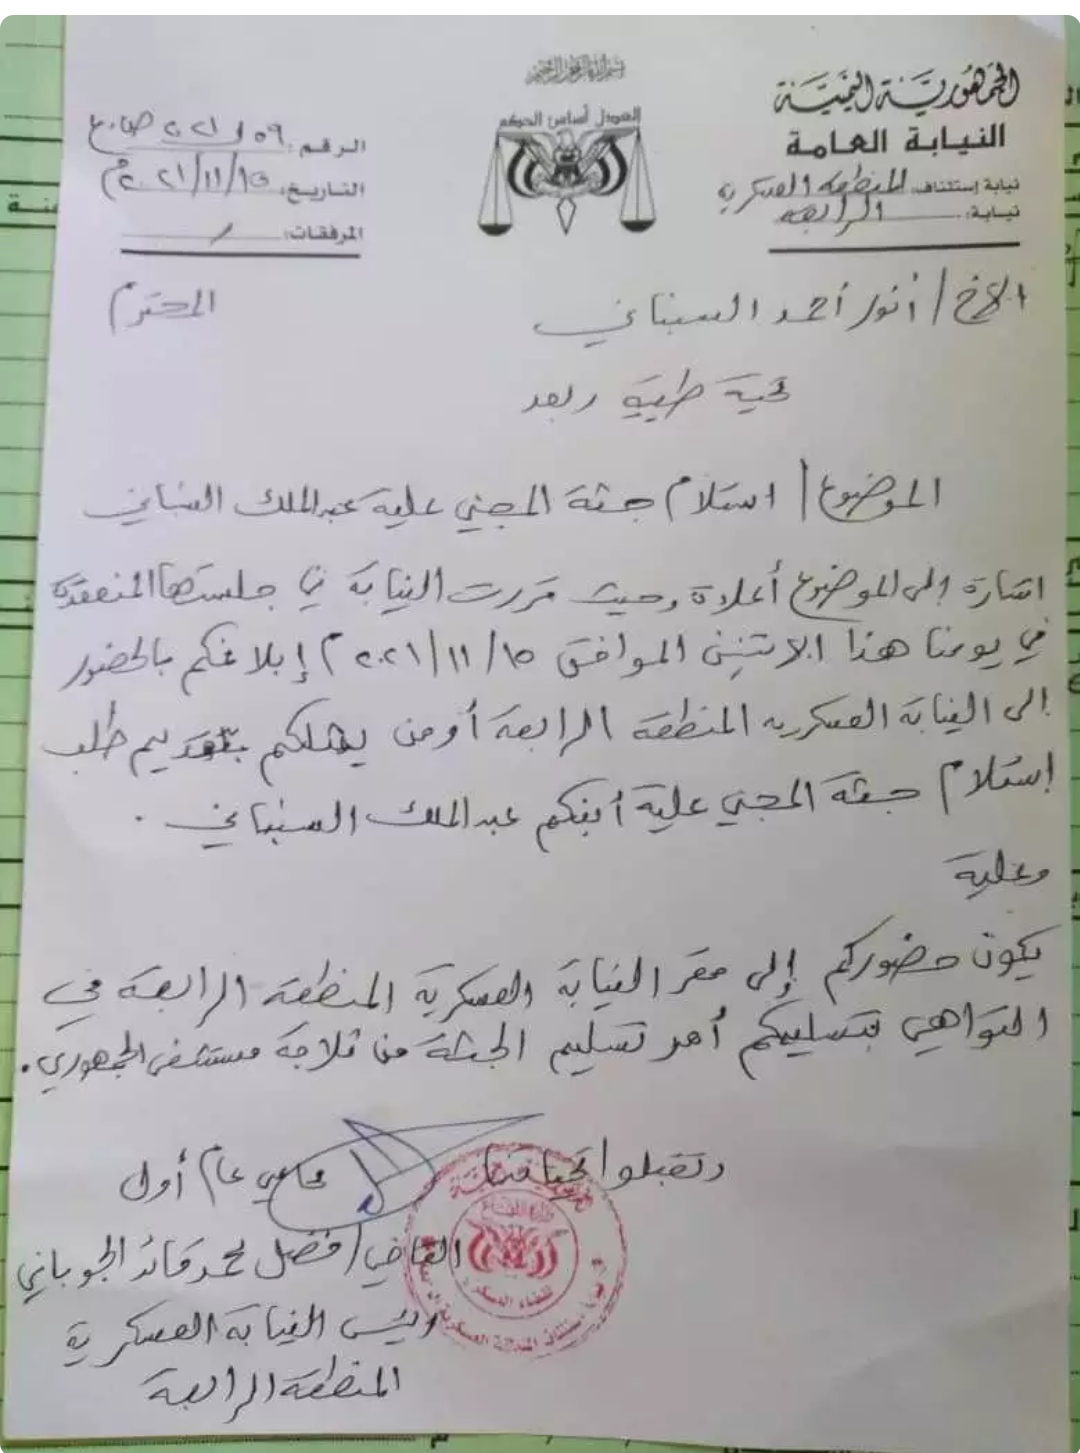 بسم الله الرحمن الرحيم
الجمهورية اليمنية
النيابة العامة
نيابة إستئناف: المنطقة العسكرية
نيابة: الرابعة
العدل أساس الحكم
الرقم:
التاريخ: ٢٠٢١/١١/١٥م
المرفقات: /
الاخ / أنور أحمد السنباني
المحترم
تحية طيبة وبعد
الموضوع / استلام جثة المجني علية عبدالملك السنباني
اشارة إلى الموضوع أعلاة وحيث قررت النيابة في جلستها المنعقدة
في يومنا هذا الاثنين الموافق ٢٠٢١/١١/١٥م إبلاغكم بالحضور
إلى النيابة العسكرية المنطقة الرابعة أو من يمثلكم بتقديم طلب
إستلام جثة المجني علية أبنكم عبدالملك السنباني .
وعلية
يكون حضوركم إلى مقر النيابة العسكرية المنطقة الرابعة في
التواهي بتسليمكم أمر تسليم الجثة من ثلاجة مستشفى الجمهوري .
وتقبلو تحياتنا
محامي عام أول
القاضي / فضل محمد قائد الجوباني
رئيس النيابة العسكرية
المنطقة الرابعة